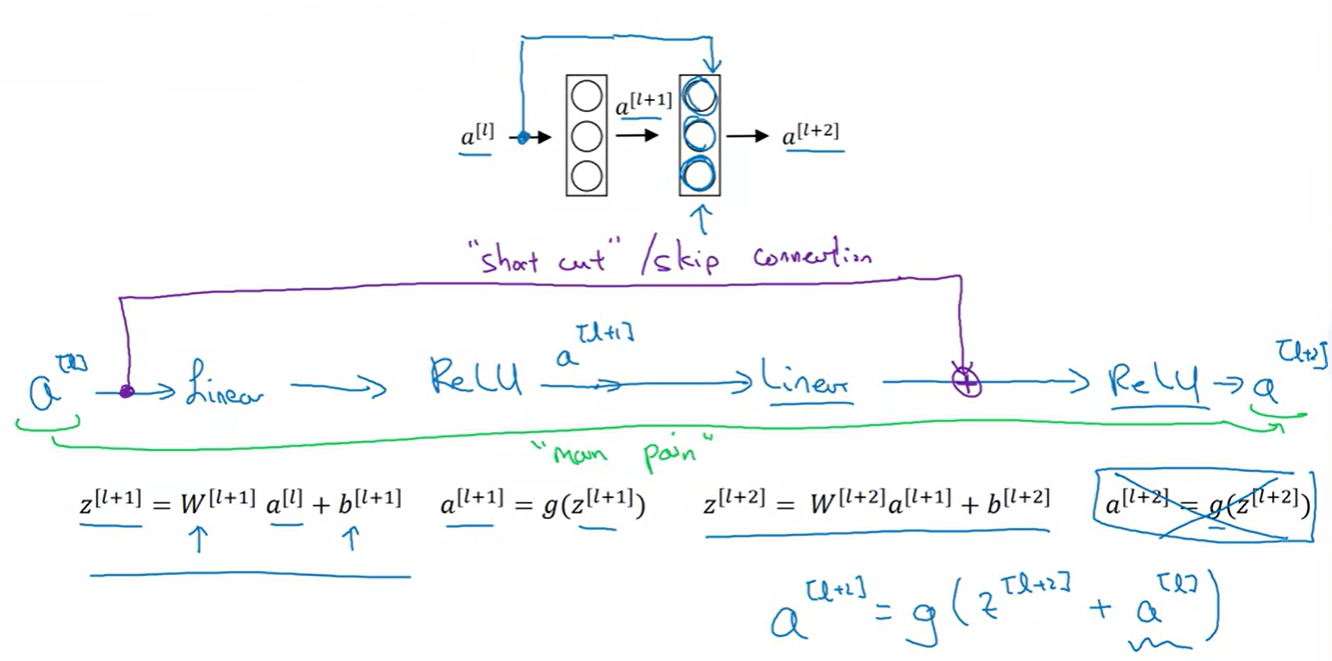 a^[l] a^[l+1] a^[l+2]
"short cut" / skip connection
a^[l] Linear ReLU a^[l+1] Linear ReLU a^[l+2]
"main path"
z^[l+1] = W^[l+1] a^[l] + b^[l+1] a^[l+1] = g(z^[l+1]) z^[l+2] = W^[l+2] a^[l+1] + b^[l+2] a^[l+2] = g(z^[l+2])
a^[l+2] = g(z^[l+2] + a^[l])